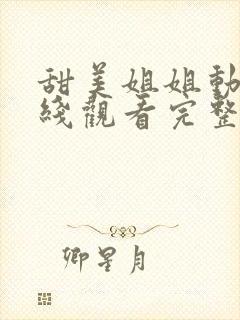 甜美姐姐動
綫觀看完整
卿星月